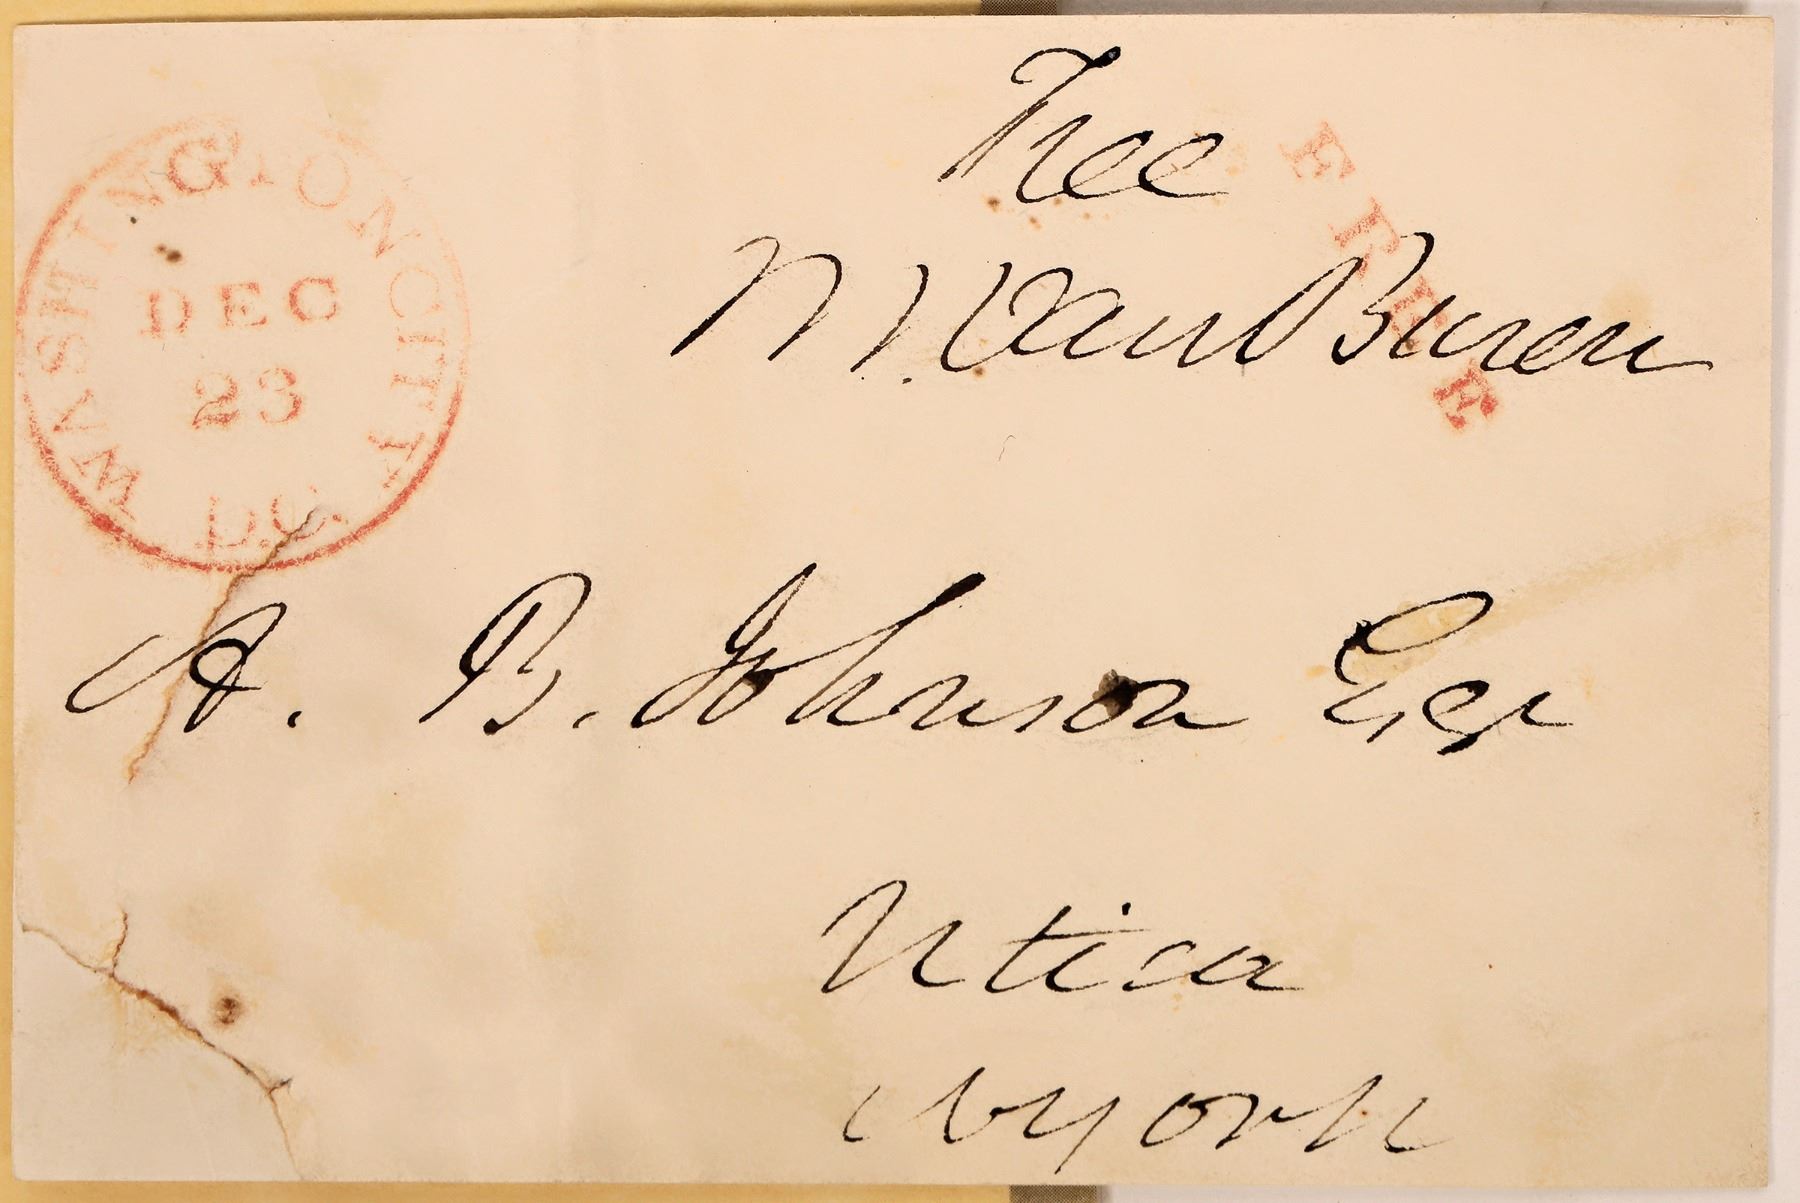 Free
FREE
M. Van Buren
WASHINGTON CITY
DEC
23
D.C.
A. B. Johnson Esqr
Utica
N York